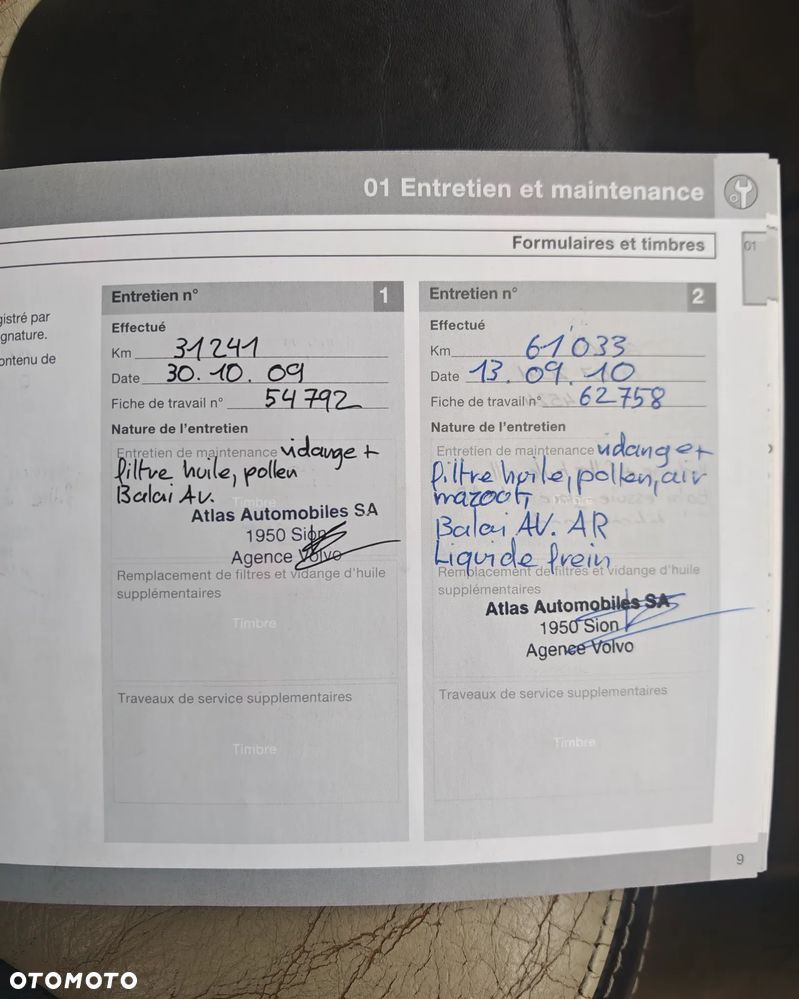 01 Entretien et maintenance
Formulaires et timbres
01
gistré par
gnature.
ontenu de
Entretien n° 1
Effectué
Km 31241
Date 30.10.09
Fiche de travail n° 54792
Nature de l'entretien
Entretien de maintenance vidange +
filtre huile, pollen
Balai AV.
Timbre
Atlas Automobiles SA
1950 Sion
Agence Volvo
Remplacement de filtres et vidange d'huile
supplémentaires
Timbre
Traveaux de service supplementaires
Timbre
Entretien n° 2
Effectué
Km 61033
Date 13.09.10
Fiche de travail n° 62758
Nature de l'entretien
Entretien de maintenance vidange +
filtre huile, pollen, air
mazout,
Balai AV. AR
Liquide frein
Remplacement de filtres et vidange d'huile
supplémentaires
Atlas Automobiles SA
1950 Sion
Agence Volvo
Traveaux de service supplementaires
Timbre
9
OTOMOTO